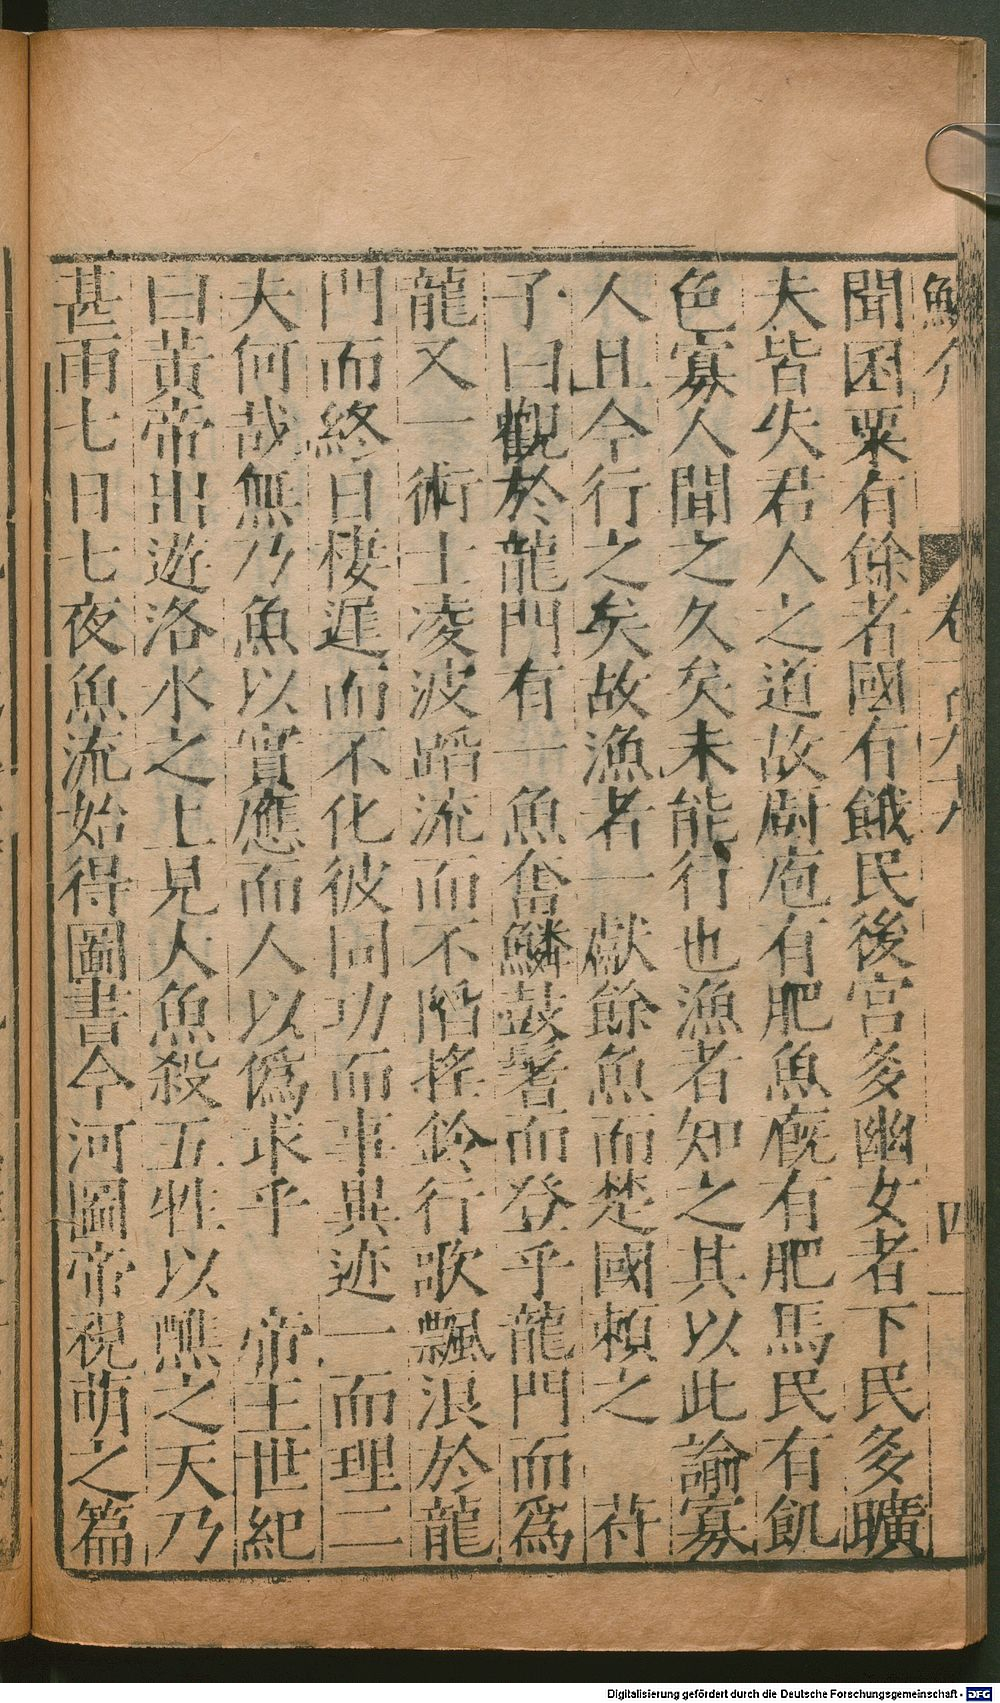 聞囷粟有餘者國有餓民後宮多幽女者下民多曠
夫皆失君人之道故廚庖有肥魚廐有肥馬民有飢
色寡人聞之久矣未能行也漁者知之其以此諭寡
人且今行之矣故漁者一獻餘魚而楚國賴之　苻
子曰觀於龍門有一魚奮鱗鼓鬐而登乎龍門而爲
龍又一術士凌波蹈流而不階搖鈴行歌飄浪於龍
門而終日棲遲而不化彼同功而事異迹一而理二
夫何哉無乃魚以實應而人以僞求乎　帝王世紀
曰黃帝出遊洛水之上見人魚殺五牲以醮之天乃
甚雨七日七夜魚流始得圖書今河圖帝視萌之篇
四
Digitalisierung gefördert durch die Deutsche Forschungsgemeinschaft - DFG